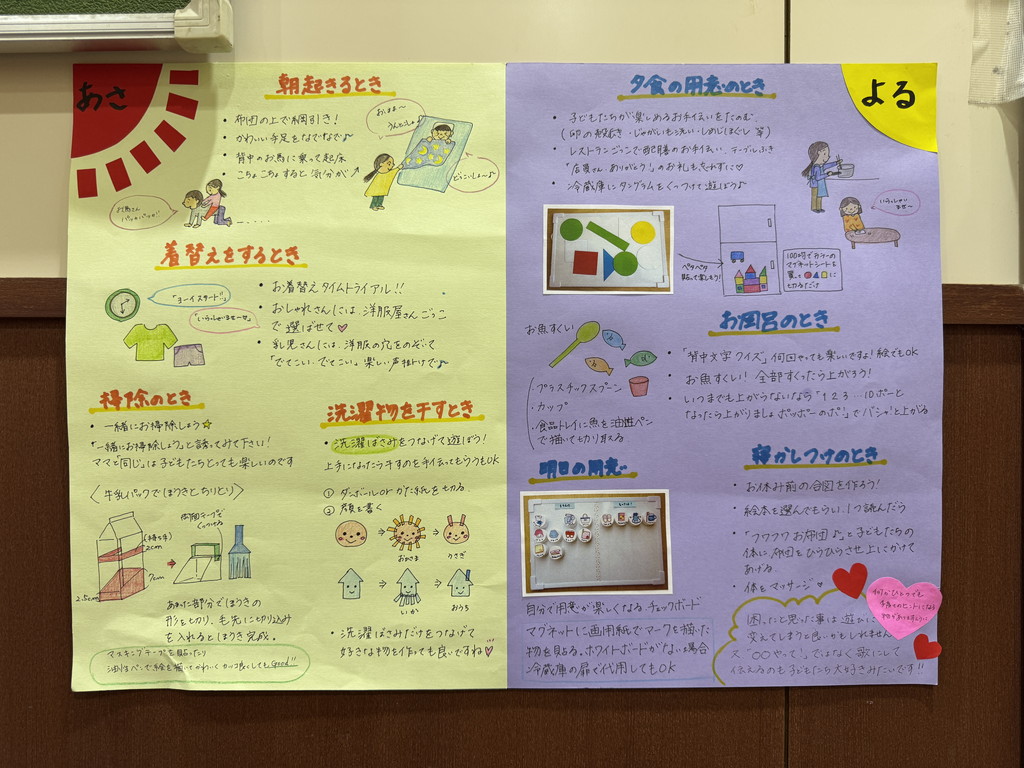 あさ
朝起きるとき
・布団の上で綱引き！
・かわいい手足をなでなで♪
・背中のお馬に乗って起床
・こちょこちょすると気分が↗
おはよ〜
うんとこしょ
どっこいしょ〜♪
お馬さん
パッカパッカ!!
着替えをするとき
「ヨーイスタード」
「いらっしゃいませ〜」
・お着替えタイムトライアル!!
・おしゃれさんには、洋服屋さんごっこ
で選ばせて♥
・乳児さんには、洋服の穴をのぞいて
「でてこい、でてこい」楽しい声掛けで♪
掃除のとき
・一緒にお掃除しよう☆
「一緒にお掃除しよう」と誘ってみて下さい!
ママと「同じ」は子どもたちとっても楽しいのです
〈牛乳パックでほうきとちりとり〉
両面テープで
くっつける
(持ち手)
2cm
7cm
2.5cm
あまった部分でほうきの
形を切り、毛先に切り込み
を入れるとほうき完成。
マスキングテープを貼ったり
油性ペンで絵を描いてかわいくカッコ良くしてもGood!!
洗濯物を干すとき
・洗濯ばさみをつなげて遊ぼう!
上手になったら干すのを手伝ってもらうもOK
① ダンボールorかた紙を切る
② 顔を書く
おかさま
うさぎ
いか
おうち
・洗濯ばさみだけをつなげて
好きな物を作っても良いですね♥
よる
夕食の用意のとき
・子どもたちが楽しめるお手伝いをたのむ。
(卵の殻むき・じゃがいも洗い・しめじほぐし 等)
・レストランごっこで配膳のお手伝い、テーブルふき
「店長さん、ありがとう!」のお礼も忘れずに♡
・冷蔵庫にタングラムをくっつけて遊ぼう♪
いらっしゃい
ませ〜
ペタペタ
貼って楽しもう!
100均でカラーの
マグネットシートを
買って●▲■に
切るだけ
お風呂のとき
・「背中文字クイズ」何回やっても楽しいですよ!絵でもOK
・お魚すくい! 全部すくったら上がろう!
・いつまでも上がらないなら「1 2 3 … 10 ポーと
なったら上がりましょポッポーのポ!」でバシャ!と上がる
お魚すくい
・プラスチックスプーン
・カップ
・食品トレイに魚を油性ペン
で描いて切り取る
明日の用意
自分で用意が楽しくなるチェックボード
マグネットに画用紙でマークを描いた
物を貼る。ホワイトボードがない場合
冷蔵庫の扉で代用してもOK
寝かしつけのとき
・お休み前の合図を作ろう!
・絵本を選んでもらい、1つ読んだら
・「フワフワお布団♪」と子どもたちの
体に布団をひらひらさせ上にかけて
あげる。
・体をマッサージ♥
困ったと思った事は遊びに
変えてしまうと良いかもしれません
ス「○○やって!」ではなく歌にして
伝えるのも子どもたち大好きみたいです!!